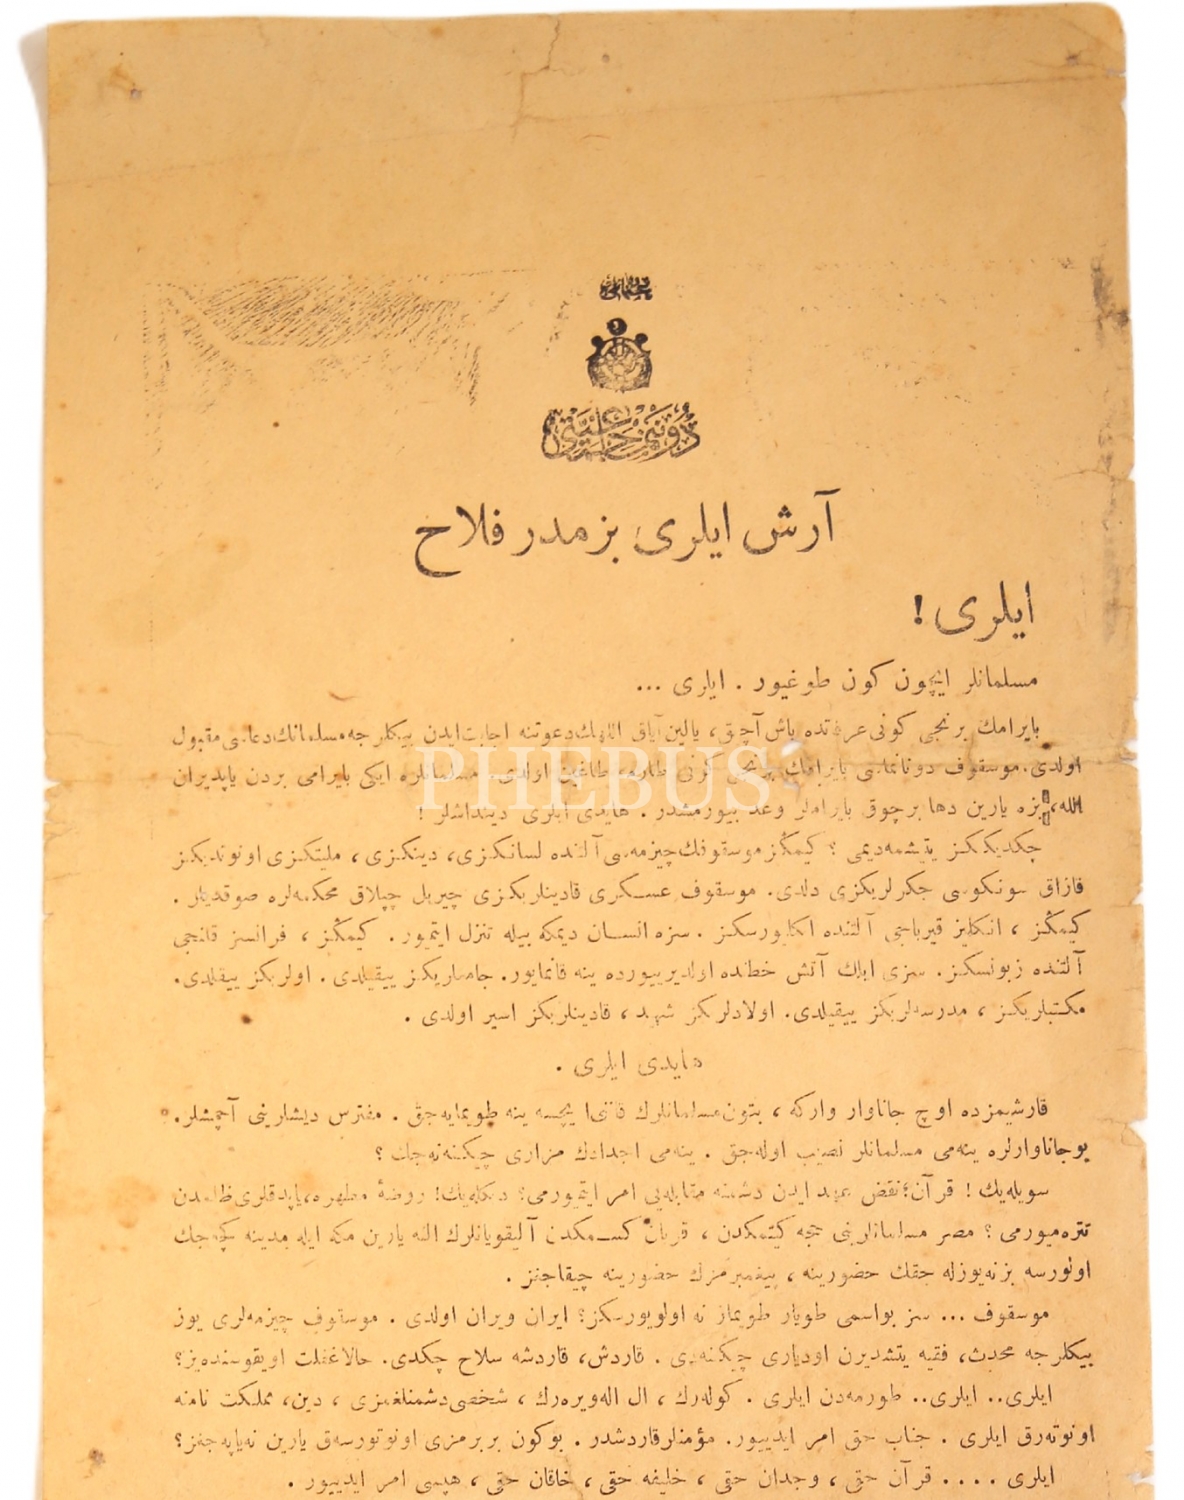 عثمانلی
دونانمای
جمعیتی
آرش ایلری بزمدر فلاح
ایلری !
مسلمانلر ایچون كون طوغیور . ایلری ...
بایرامك برنجی كونی عرفاتده باش آچیق، یالین آیاق اللهك دعوتنه اجابت ایدن بیكلرجه مسلمانك دعاسی مقبول
اولدی. موسقوف دونانماسی بایرامك برنجی كونی طارمه طاغین اولدی. مسلمانلره ایكی بایرامی بردن یاپدیران
الله، بزه یارین دها برچوق بایراملر وعد بیورمشدر . هایدی ایلری دینداشلر !
PHEBUS
چكدیككز یتیشمه‌دیمی ؟ كیمكز موسقوفك چیزمه‌سی آلتنده لسانكزی، دینكزی، ملیتكزی اونوتدیكز
قازاق سونكوسی جكرلریكزی دلدی. موسقوف عسكری قادینلریكزی چیریل چپلاق محكمه‌لره صوقدیلر .
كیمكز ، انكلیز قیرباجی آلتنده اكلیورسكز . سزه انسان دیمكه بیله تنزل ایتمیور . كیمكز ، فرانسز قانجی
آلتنده زبونسكز. سزی ایلك آتش خطنده اولدیریییورده ینه قانمایور. جامعلریكز ییقیلدی . اولریكز ییقیلدی.
مكتبلریكز ، مدرسه‌لریكز ییقیلدی. اولادلركز شهید ، قادینلریكز اسیر اولدی .
هایدی ایلری .
قارشیمزده اوچ جاناوار واركه ، بتون مسلمانلرك قاننی ایچسه ینه طویمایه‌جق . مفترس دیشلرینی آچمشلر.
بوجاناوارلره ینه‌می مسلمانلر نصیب اوله‌جق . ینه‌می اجدادك مزاری چیكننه‌جك ؟
سویله‌یك ! قرآن، نقض عهد ایدن دشمنه مقابله‌یی امر ایتمیورمی؟ دیكله‌یك! روضۀ مطهره، یاپدقلری ظلمدن
تتره‌میورمی ؟ مصر مسلمانلرینی حجه كیتمكدن ، قربان كسمكدن آلیقویانلرك الته یارین مكه ایله مدینه كچه‌جك
اولورسه بز نه‌یوزله حقك حضورینه ، پیغمبرمزك حضورینه چیقاجغز .
موسقوف ... سز بواسمی طویار طویماز نه اولویورسكز؟ ایران ویران اولدی . موسقوف چیزمه‌لری یوز
بیكلرجه محدث، فقیه یتشدیرن اودیاری چیكنه‌دی . قاردش، قاردشه سلاح چكدی. حالا غفلت اویقوسنده‌یز؟
ایلری.. ایلری.. طورمه‌دن ایلری . كوله‌رك ، ال اله‌ویره‌رك ، شخصی دشمنلغمزی ، دین، مملكت نامنه
اونوته‌رق ایلری . جناب حق امر ایدییور. مؤمنلر قاردشدر . بوكون بربرمزی اونوتورسه‌ق یارین نه‌یاپه‌جغز؟
ایلری .... قرآن حقی ، وجدان حقی ، خلیفه حقی ، خاقان حقی ، هپسی امر ایدییور .